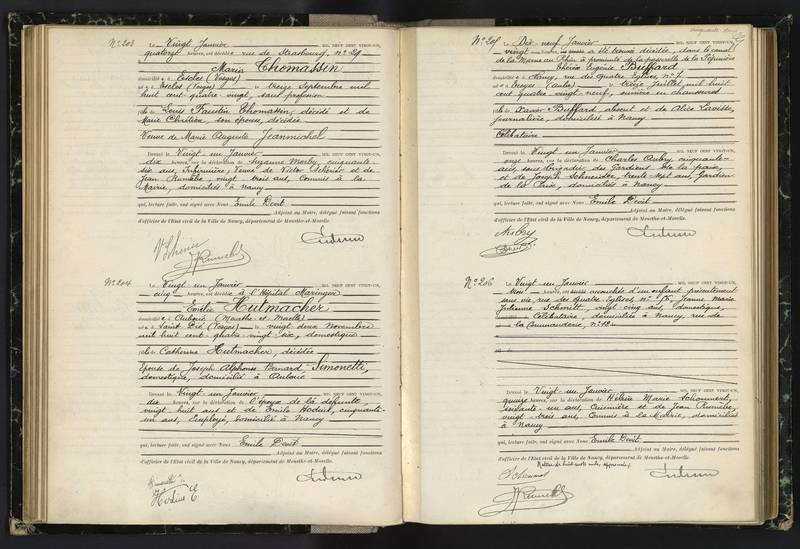 N° 203
Le Vingt Janvier MIL NEUF CENT VINGT-UN,
quatorze heures, est décédée rue de Strasbourg, n° 29
Marie Thomassin
domiciliée à Escles (Vosges)
née à Escles (Vosges) le treize Septembre mil
huit cent quatre-vingt, sans profession
fille de Louis Faustin Thomassin, décédé et de
Marie Chrétien, son épouse, décédée
Veuve de Marie Auguste Jeanmichel
Dressé le Vingt-un Janvier MIL NEUF CENT VINGT-UN,
dix heures, sur la déclaration de Suzanne cinquante-
six ans, Infirmière, Veuve de Victor et de
Jean vingt-trois ans, Commis à la
Mairie, domiciliés à Nancy
qui, lecture faite, ont signé avec Nous Emile Devit
Adjoint au Maire, délégué faisant fonctions
d'officier de l'Etat civil de la Ville de Nancy, département de Meurthe-et-Moselle.
N° 204
Le Vingt-un Janvier MIL NEUF CENT VINGT-UN,
cinq heures, est décédée à l'Hôpital Maringer
Emilie Hutmacher
domiciliée à Auboué (Meurthe et Moselle)
née à Saint Dié (Vosges) le vingt deux Novembre
mil huit cent quatre vingt six, domestique
fille de Catherine Hutmacher, décédée
Epouse de Joseph Alphonse Bernard Simonetti,
domestique, domicilié à Auboué
Dressé le Vingt-un Janvier MIL NEUF CENT VINGT-UN,
dix heures, sur la déclaration de l'époux de la défunte
vingt huit ans et de Emile cinquante-
un ans, Employé, domicilié à Nancy
qui, lecture faite, ont signé avec Nous Emile Devit
Adjoint au Maire, délégué faisant fonctions
d'officier de l'Etat civil de la Ville de Nancy, département de Meurthe-et-Moselle.
N° 205
Le Dix-neuf Janvier MIL NEUF CENT VINGT-UN,
vingt heures, a été trouvée décédée, dans le canal
de la Marne au Rhin à proximité de la passerelle de la Pépinière
Eugénie Buffard
domiciliée à Nancy, rue des quatre Eglises, n° 7
née à Troyes (Aube) le treize Juillet mil huit
cent quatre vingt-neuf, ouvrière en chaussures
fille de Xavier Buffard absent et de Alice
journalière, domiciliés à Nancy
Célibataire
Dressé le Vingt-un Janvier MIL NEUF CENT VINGT-UN,
onze heures, sur la déclaration de Charles Aubry, cinquante-
ans, sous-brigadier des Gardiens de la paix,
et de Joseph Schneider, trente sept ans, Gardien
de la Paix, domiciliés à Nancy
qui, lecture faite, ont signé avec Nous Emile Devit
Adjoint au Maire, délégué faisant fonctions
d'officier de l'Etat civil de la Ville de Nancy, département de Meurthe-et-Moselle.
Aubry
N° 206
Le Vingt-un Janvier MIL NEUF CENT VINGT-UN,
trois heures, est accouchée d'un enfant présentement
sans vie rue des Quatre Eglises n° Jeanne Marie
Julienne Schmitt, vingt cinq ans, domestique,
Célibataire, domiciliée à Nancy rue de
la Commanderie, n° 12
Dressé le Vingt-un Janvier MIL NEUF CENT VINGT-UN,
quinze heures, sur la déclaration de Hélène Marie
soixante-un ans, Cuisinière et de Jean
vingt-trois ans, Commis à la Mairie, domiciliés
à Nancy
qui, lecture faite, ont signé avec Nous Emile Devit
Adjoint au Maire, délégué faisant fonctions
d'officier de l'Etat civil de la Ville de Nancy, département de Meurthe-et-Moselle.